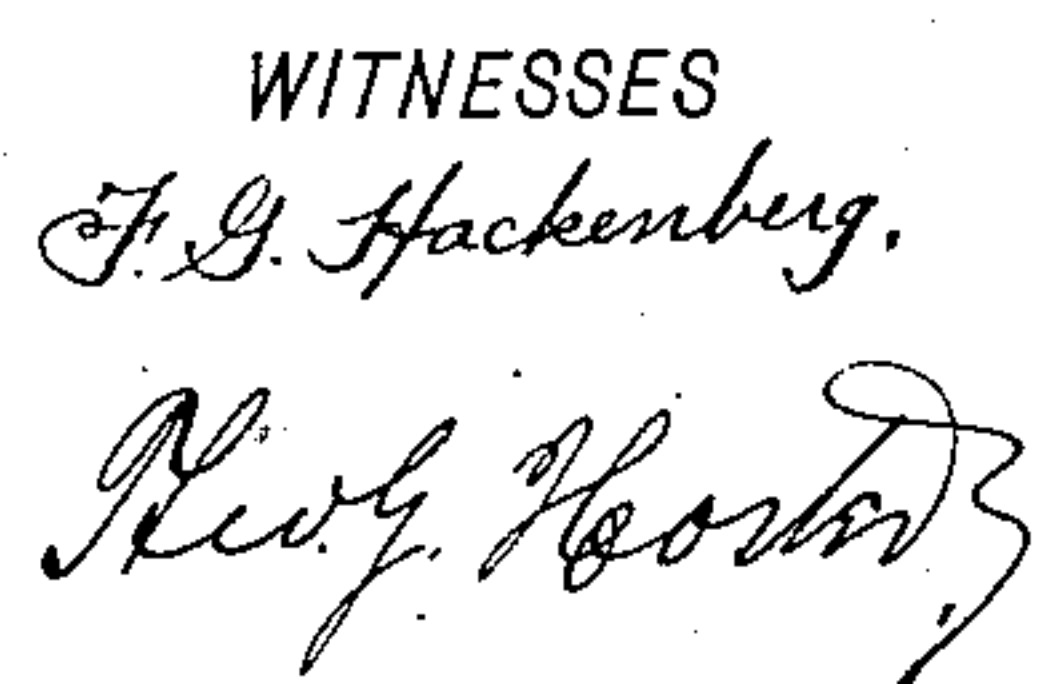 WITNESSES
F. G. Hackenberg.
G. Hoster